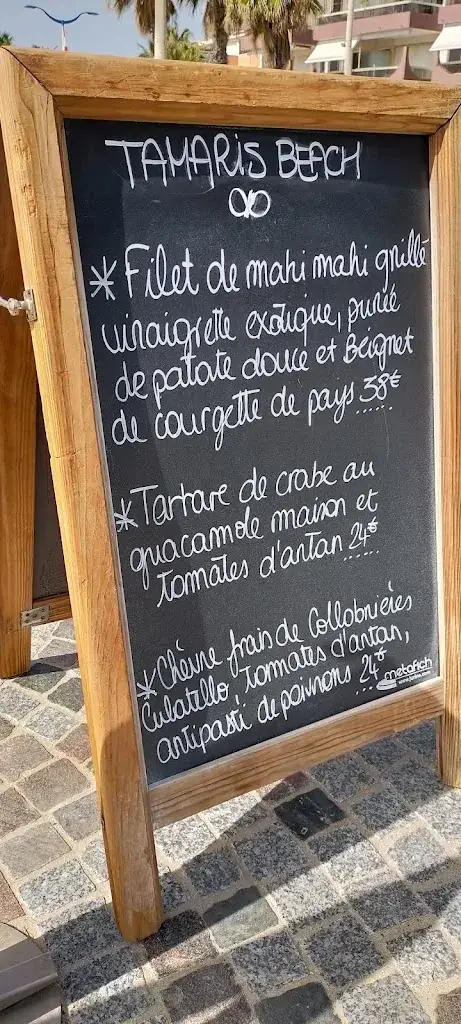 TAMARIS BEACH
* Filet de mahi mahi grillé
vinaigrette exotique, purée
de patate douce et Beignet
de courgette de pays 38€
* Tartare de crabe au
guacamole maison et
tomates d'antan 24€
* Chèvre frais de Collobrières
Culatello, tomates d'antan,
antipasti de poivrons 24€
metafich